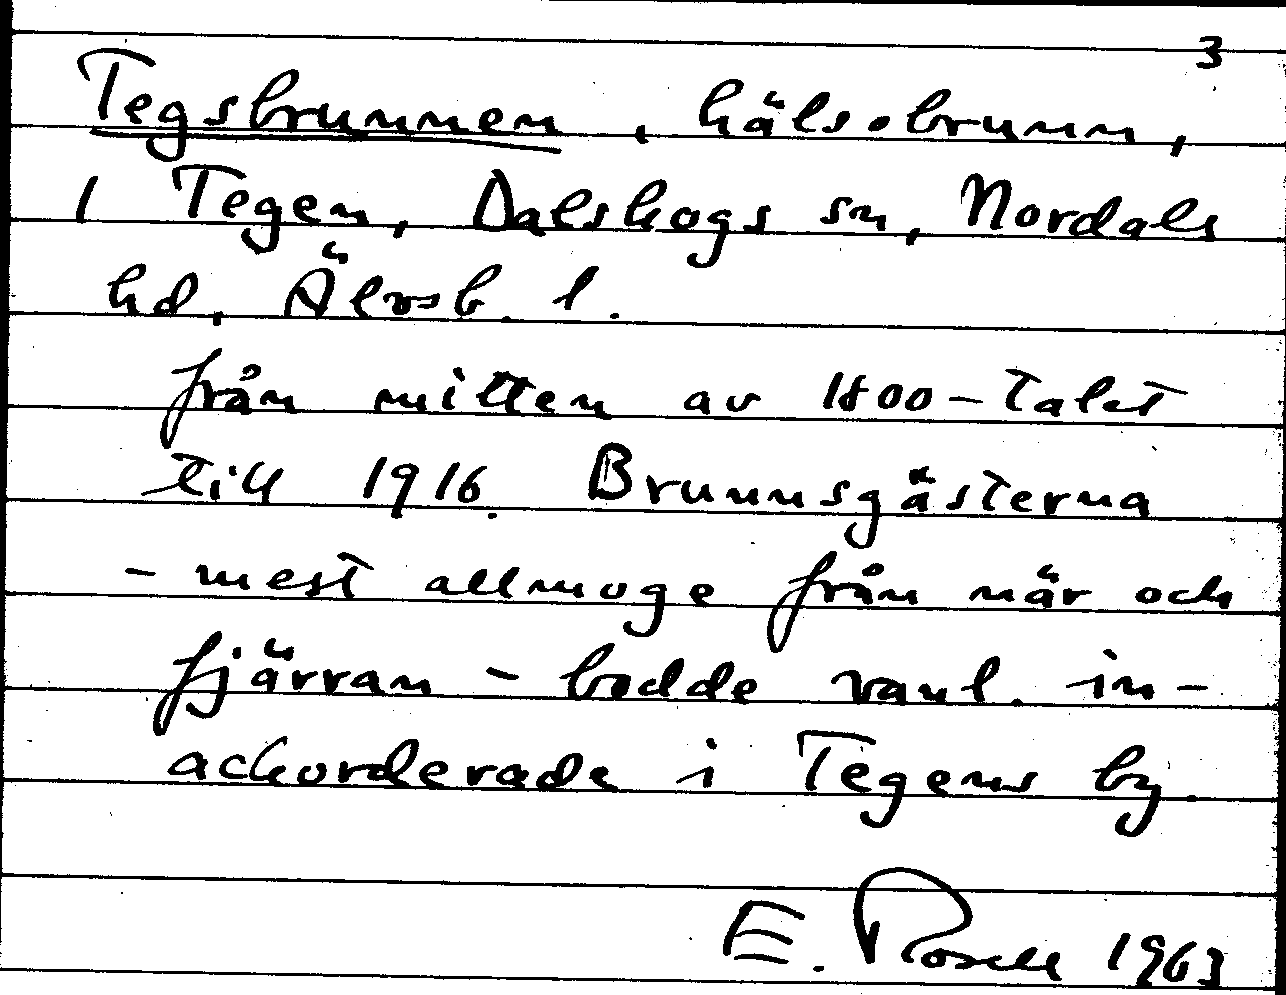 3
Tegsbrunnen, hälsobrunn,
i Tegen, Dalskogs sn, Nordals
hd, Älvsb. l.
från mitten av 1800-talet
till 1916. Brunnsgästerna
- mest allmoge från när och
fjärran - bodde vanl. in-
ackorderade i Tegens by.
E. Rosell 1963